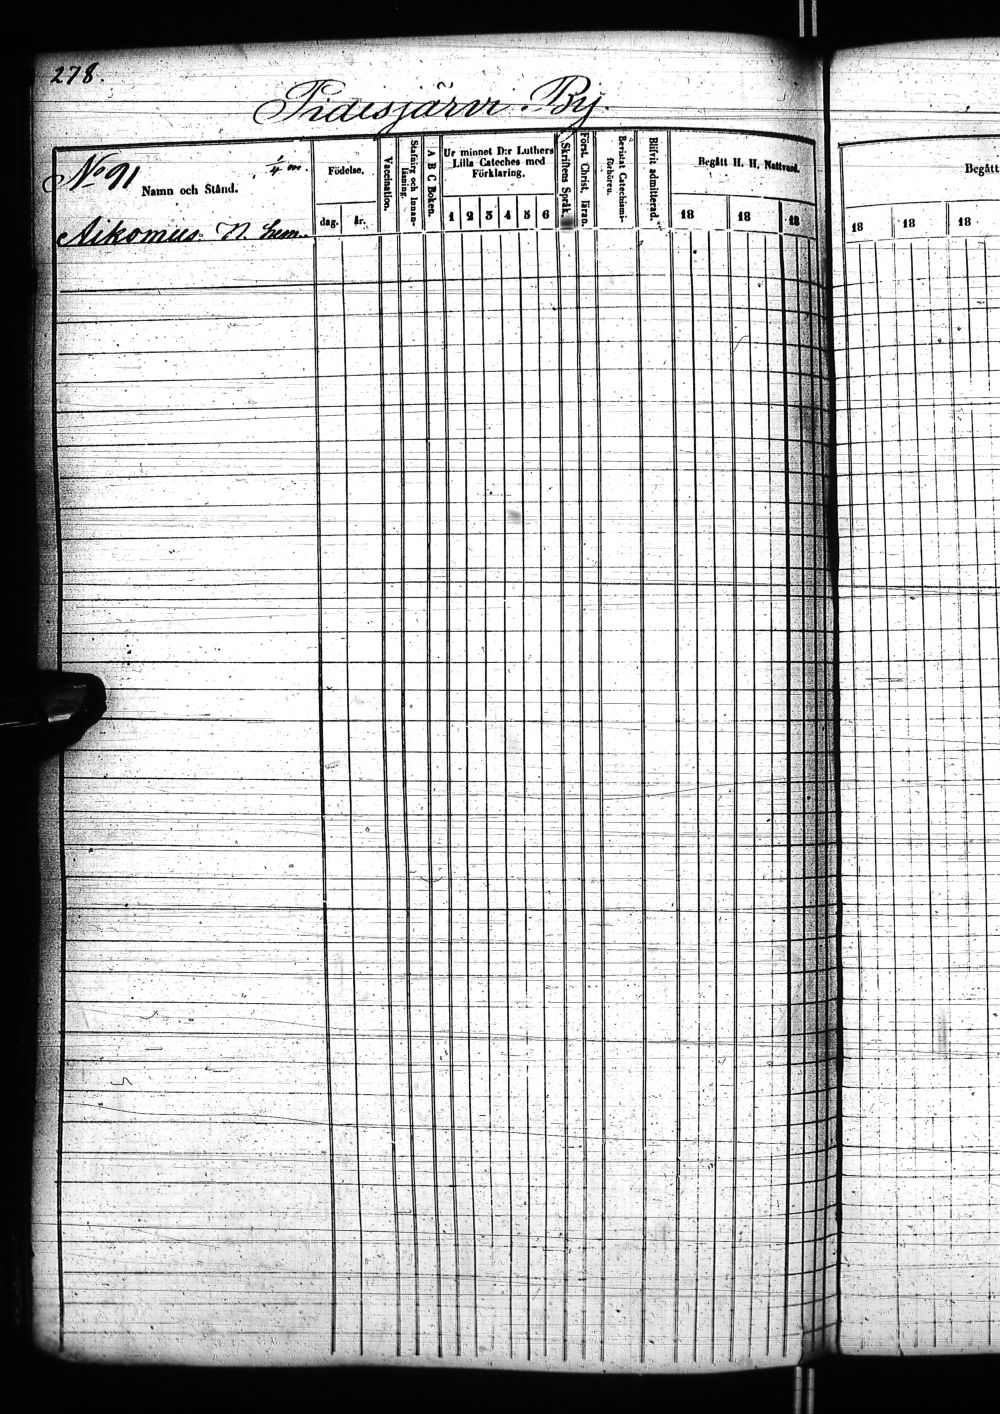 278.
Pidisjärvi By.
No 91 1/4 m.
Namn och Stånd.
Födelse.
dag. år.
Vaccination.
Stafning och Innan-
läsning.
A B C Boken.
Ur minnet D:r Luthers
Lilla Cateches med
Förklaring.
1 2 3 4 5 6
Skriftens Språk.
Först. Christ. läran.
Bevistat Catechismi-
förhören.
Blifvit admitterad.
Begått H. H. Nattvard.
18 18 18
Begått
18 18 18
Aikomus N. hem.